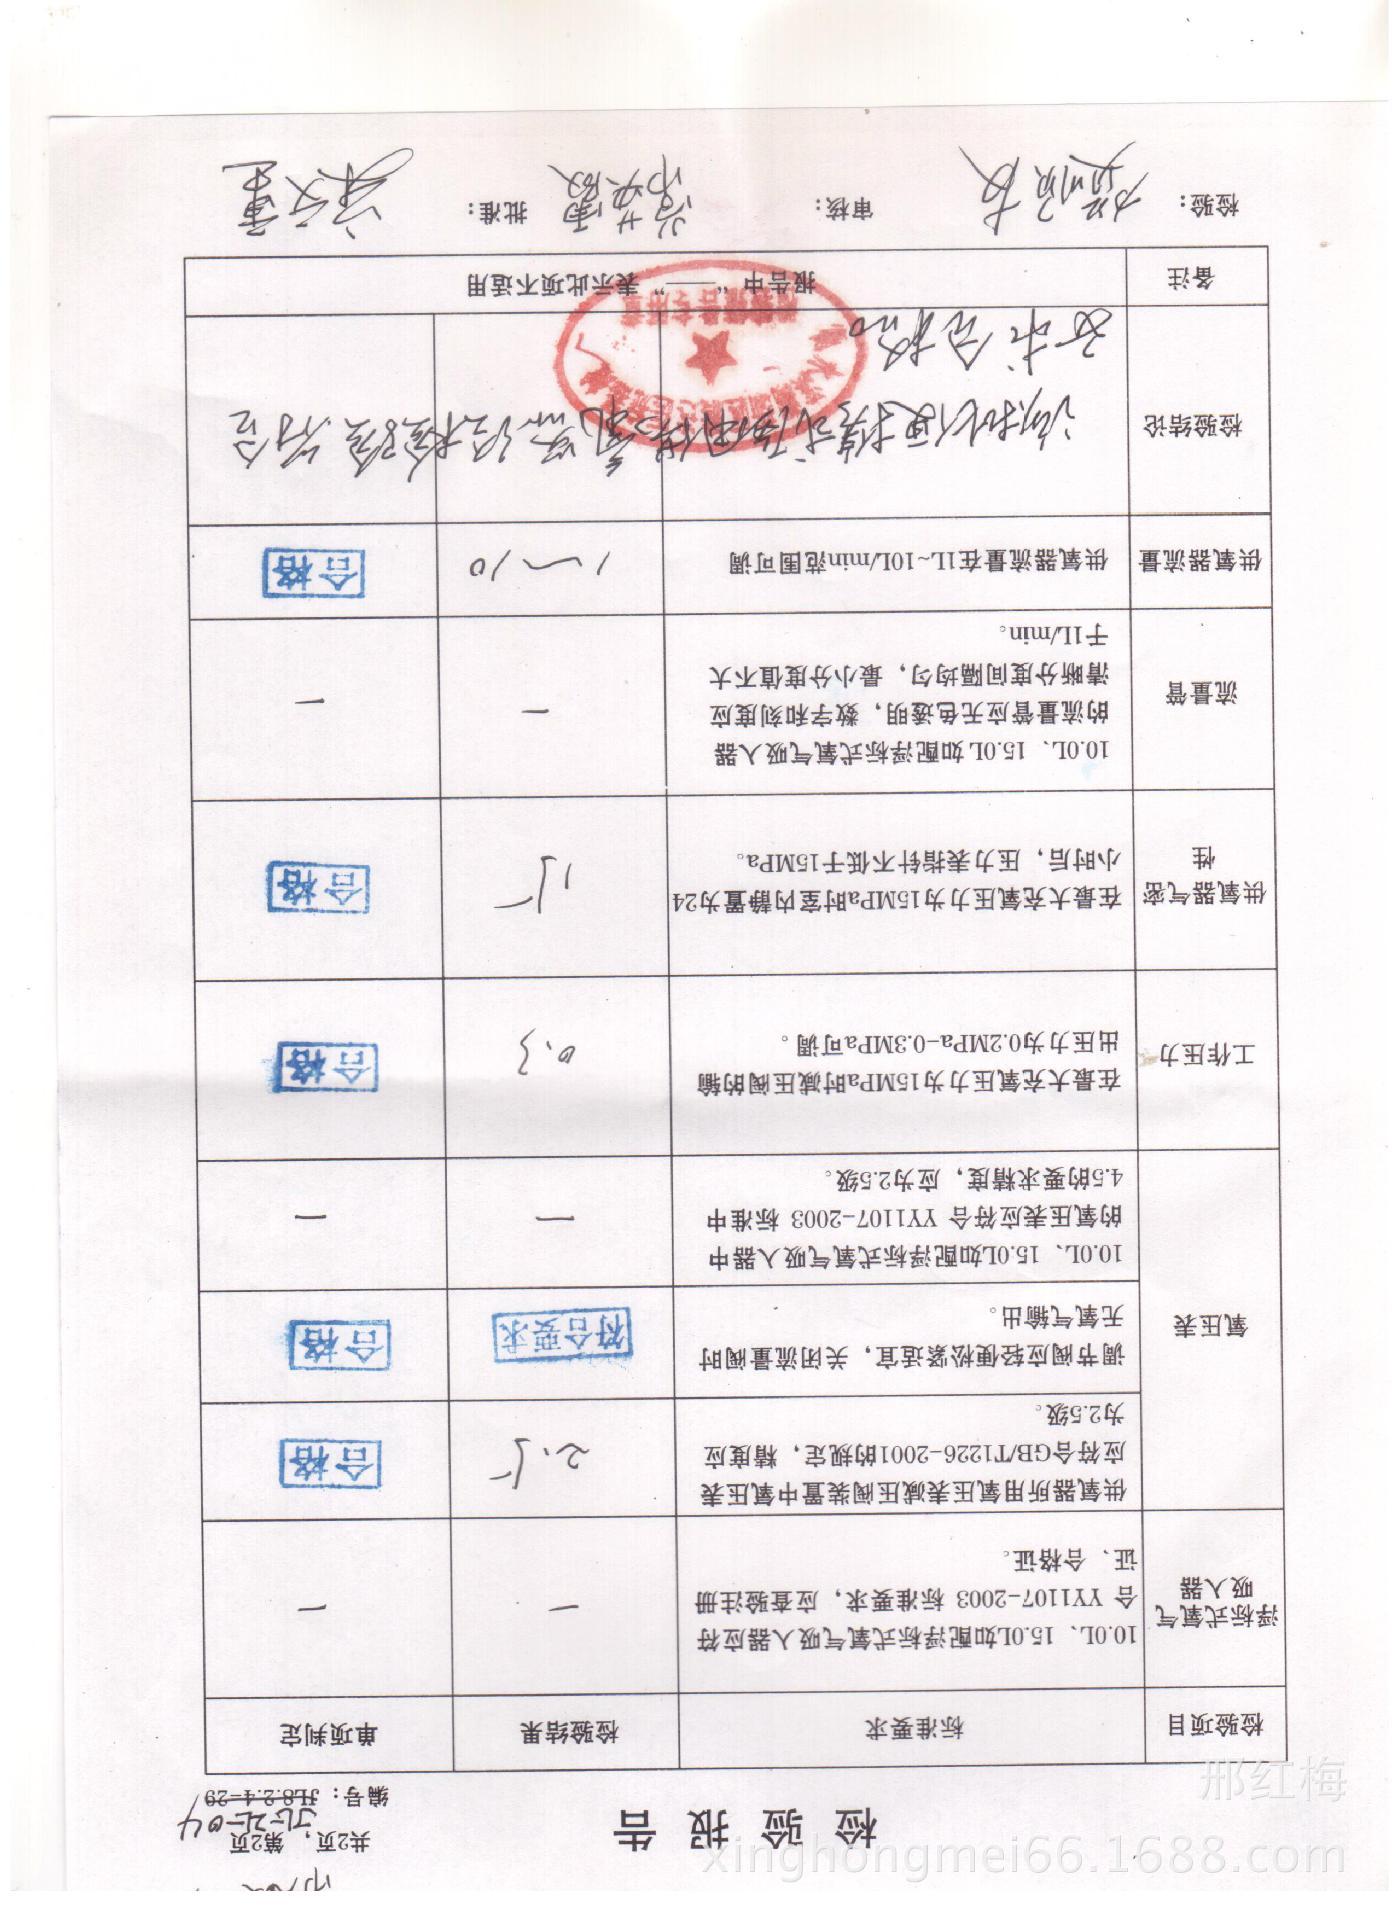 检验报告
共2页，第2页
编号：JL8.2.4-29
检验项目 标准要求 检验结果 单项判定
浮标式氧气
吸入器
10.0L、15.0L如配浮标式氧气吸入器应符
合 YY1107-2003 标准要求，应查验注册
证、合格证。
— —
氧压表
供氧器所用氧压表减压阀装置中氧压表
应符合GB/T1226-2001的规定，精度应
为2.5级。
2.5 合格
调节阀应轻便松紧适宜，关闭流量阀时
无氧气输出。
符合要求 合格
10.0L、15.0L如配浮标式氧气吸入器中
的氧压表应符合 YY1107-2003 标准中
4.5的要求精度，应为2.5级。
— —
工作压力
在最大充氧压力为15MPa时减压阀的输
出压力为0.2MPa-0.3MPa可调。
0.3 合格
供氧器气密
性
在最大充氧压力为15MPa时室内静置为24
小时后，压力表指针不低于15MPa。
15 合格
流量管
10.0L、15.0L如配浮标式氧气吸入器
的流量管应无色透明，数字和刻度应
清晰分度间隔均匀，最小分度值不大
于1L/min。
— —
供氧器流量 供氧器流量在1L~10L/min范围可调 1~10 合格
检验结论
该批便携式医用供氧器经检验符合
要求合格
备注 报告中“——”表示此项不适用
检验报告专用章
检验： 审核： 批准：
邢红梅
xinghongmei66.1688.com